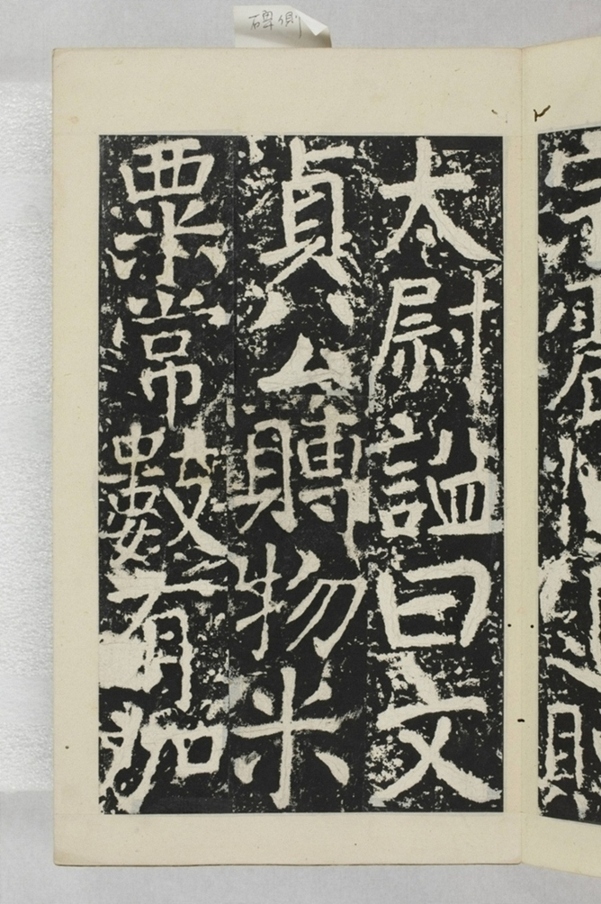 碑側
太尉謚曰文
貞公賻物米
粟常數有加